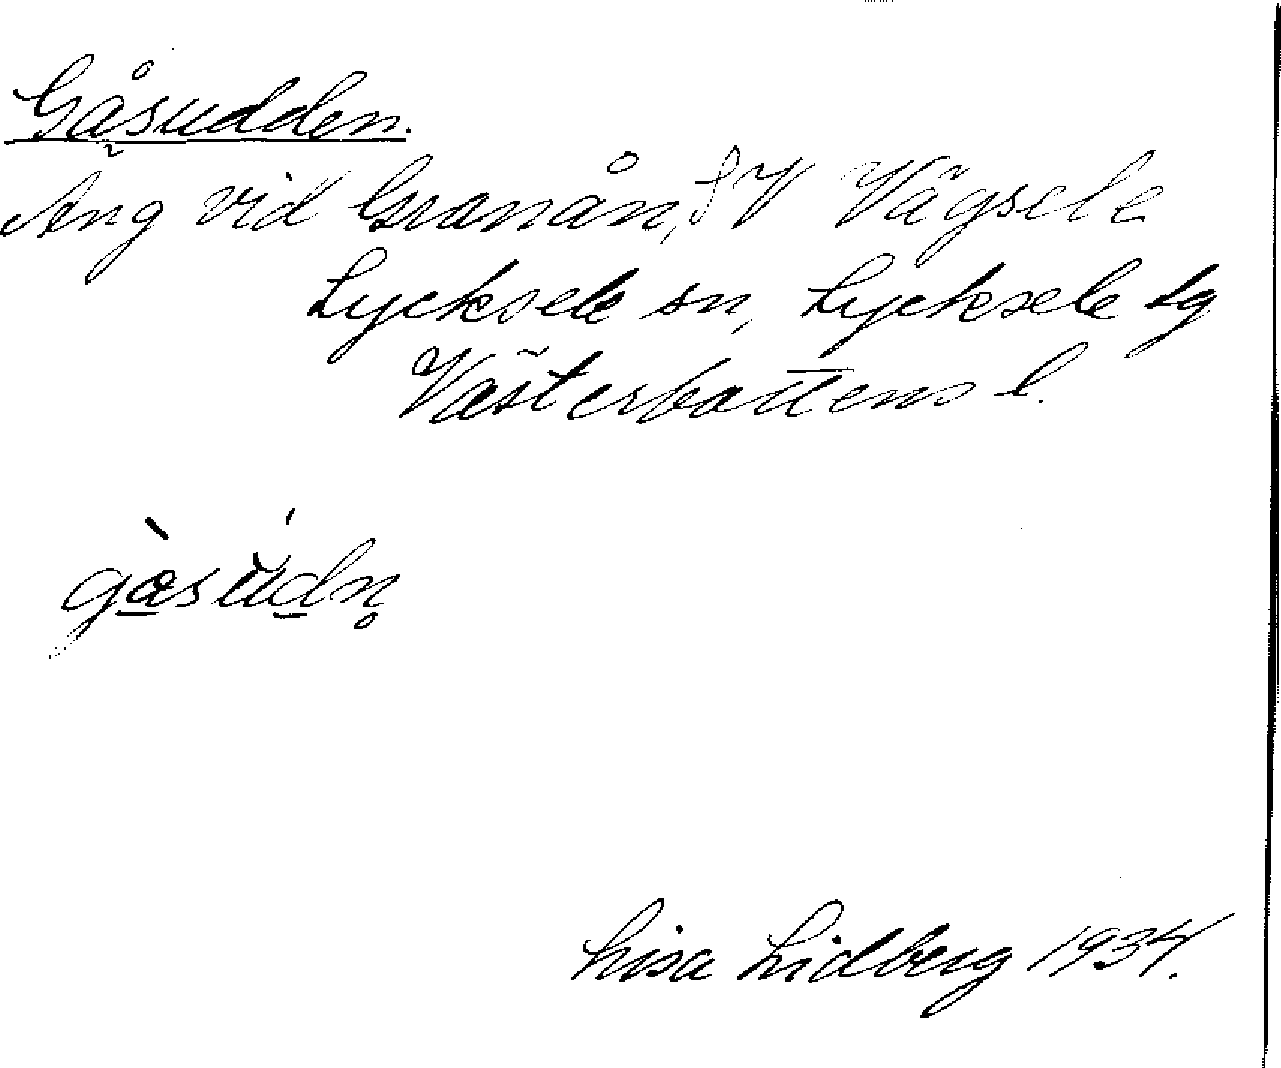 Gåsudden.
Äng vid Granån, SV Vägsele
Lycksele sn, Lycksele lg
Västerbottens l.
gæsudn̥
Lisa Lidberg 1934.